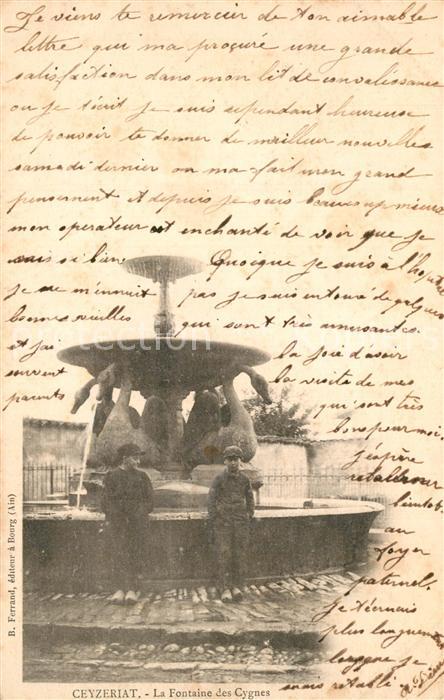 Je viens te remercier de ton aimable
lettre qui ma procuré une grande
satisfaction dans mon lit de convalissance
ou je técrit je suis sependant heureuse
de pouvoir te donner de meilleur nouvelles
samedi dernier on ma fait mon grand
pensement et depuis je suis beaucoup mieux
mon operateur est enchanté de voir que je
vais si bien Quoique je suis à l'hopital
je me m'ennuit pas je suis entouré de quelques
bonnes vieilles qui sont très amusantes
et jai la joie d'avoir
souvent la visite de mes
parents qui sont très
bons pour moi
j'éspère
retablir
bientot
au
foyer
paternel.
je técrirais
plus longuement
lorsque je
serais rétabli
B. Ferrand, éditeur à Bourg (Ain)
CEYZERIAT. - La Fontaine des Cygnes